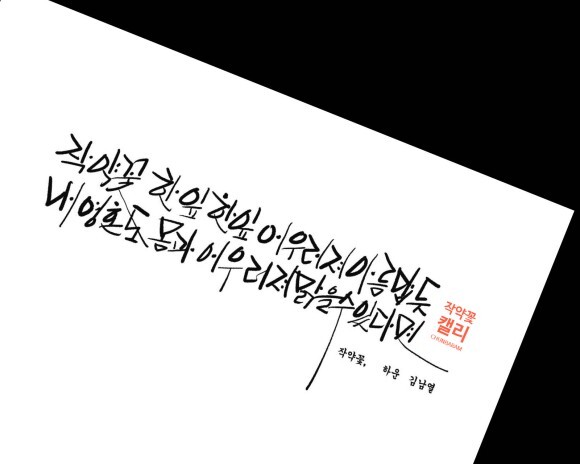 작약꽃 한잎 한잎 어우러져 아름답듯
내 영혼도 몸과 어우러져 맑을 수 있다면
작약꽃, 하운 김남열
작약꽃
캘리
CHUNBARAM